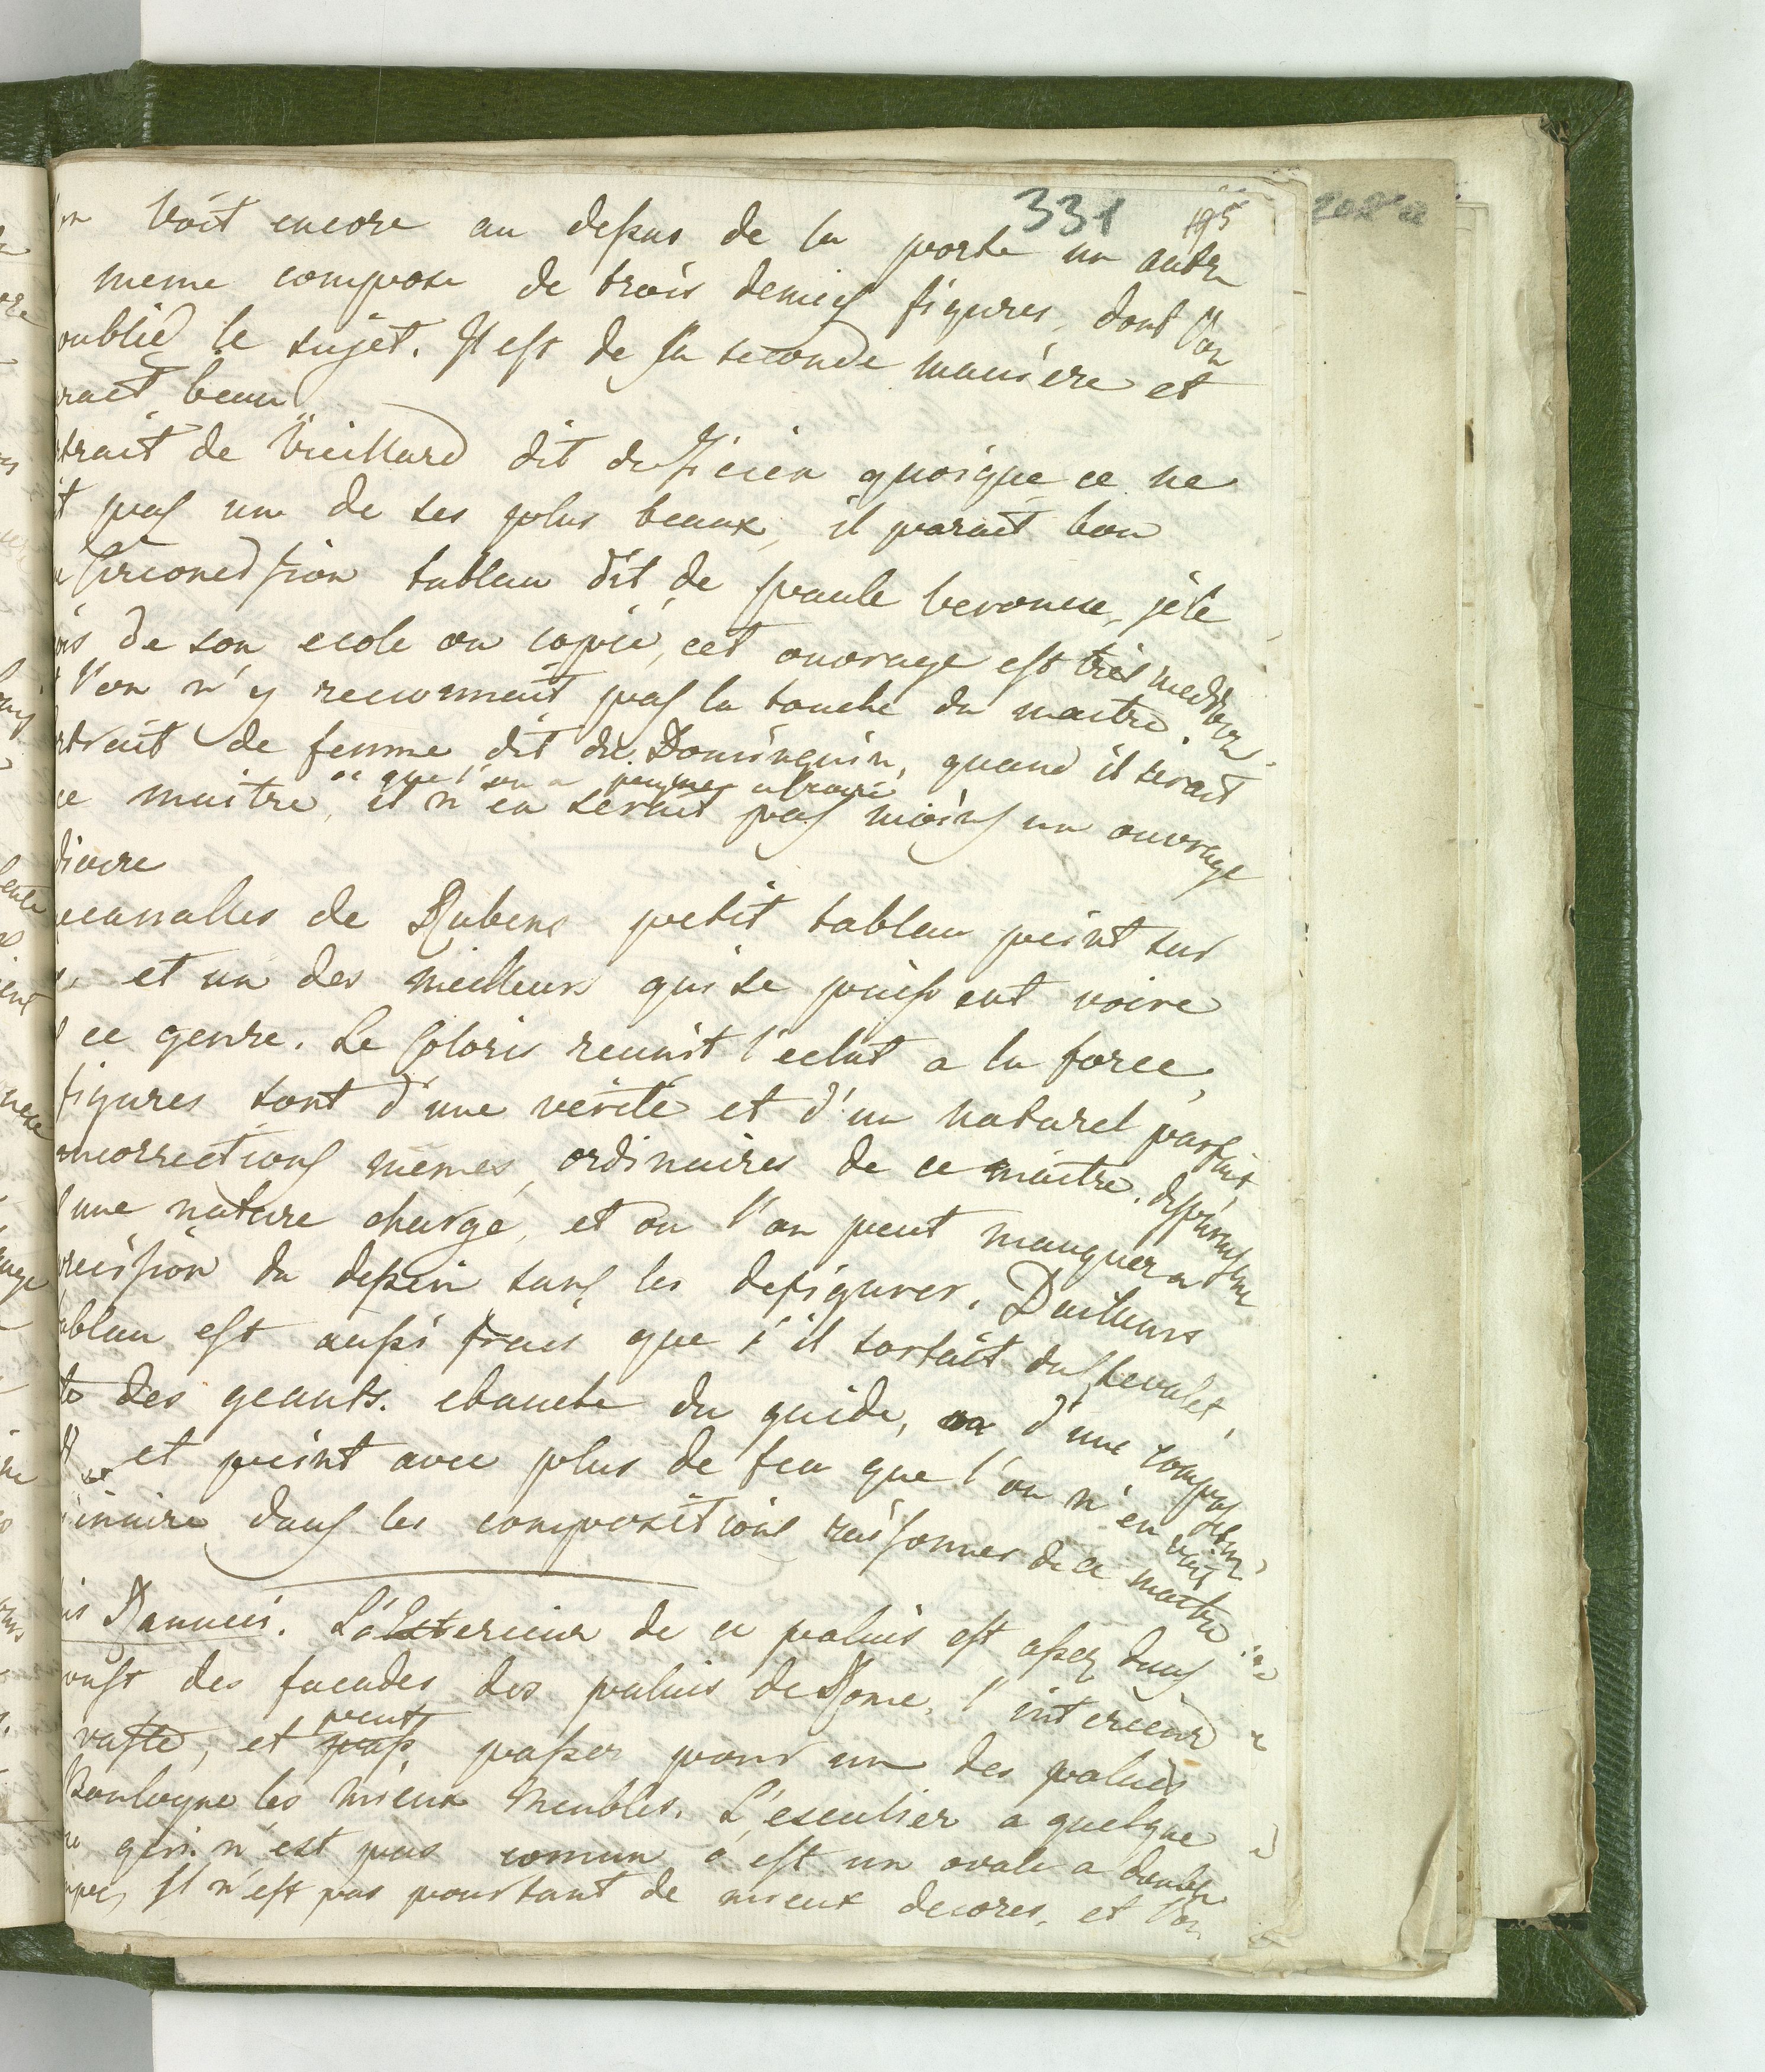 331 195
on voit encore au dessus de la porte un autre
meme compose de trois demies figures, dont j'on
oublié le sujet. Il est de sa seconde maniere et
rait beau
trait de vieillard dit du Ticien quoique ce ne
it pas un de ses plus beaux, il parait bon
Circoncission tableau dit de paule veronese, je le
ois de son ecole ou copié, cet ouvrage est tres mediocre
l'on n'y reconnait pas la touche du maitre.
rtrait de femme dit du Dominquin, quand il serait
ce que l'on a
ce maitre, il n'en serait pas moins un ouvrage
diocre
cannalles de Rubens petit tableau peint sur
et un des meilleurs qui se puissent voire
ce genre. Le Coloris reunit l'eclat a la force,
figures sont d'une verité et d'un naturel parfait
incorrections mêmes, ordinaires de ce maitre,
une nature chargé, et ou l'on peut manquer a
recission du dessin sans les defigurer. Dailleurs
ableau est aussi frais que s'il sortait du chevalet,
des geants. ebauche du guide, d'une composition,
et peint avec plus de feu que l'on n'en voit
inaire dans les compositions raisonnes de ce maitre
is Rannuci. L'Exterieur de ce palais est assez dans
oust des facades des palais de Rome, l'interieur
peut
vaste, et pass passer pour un des palais
Boulogne les mieux meublés. L'escalier a quelque
qui n'est pas comun c'est un ovale a double
mpe, Il n'est pas pourtant de mieux decores, et l'on